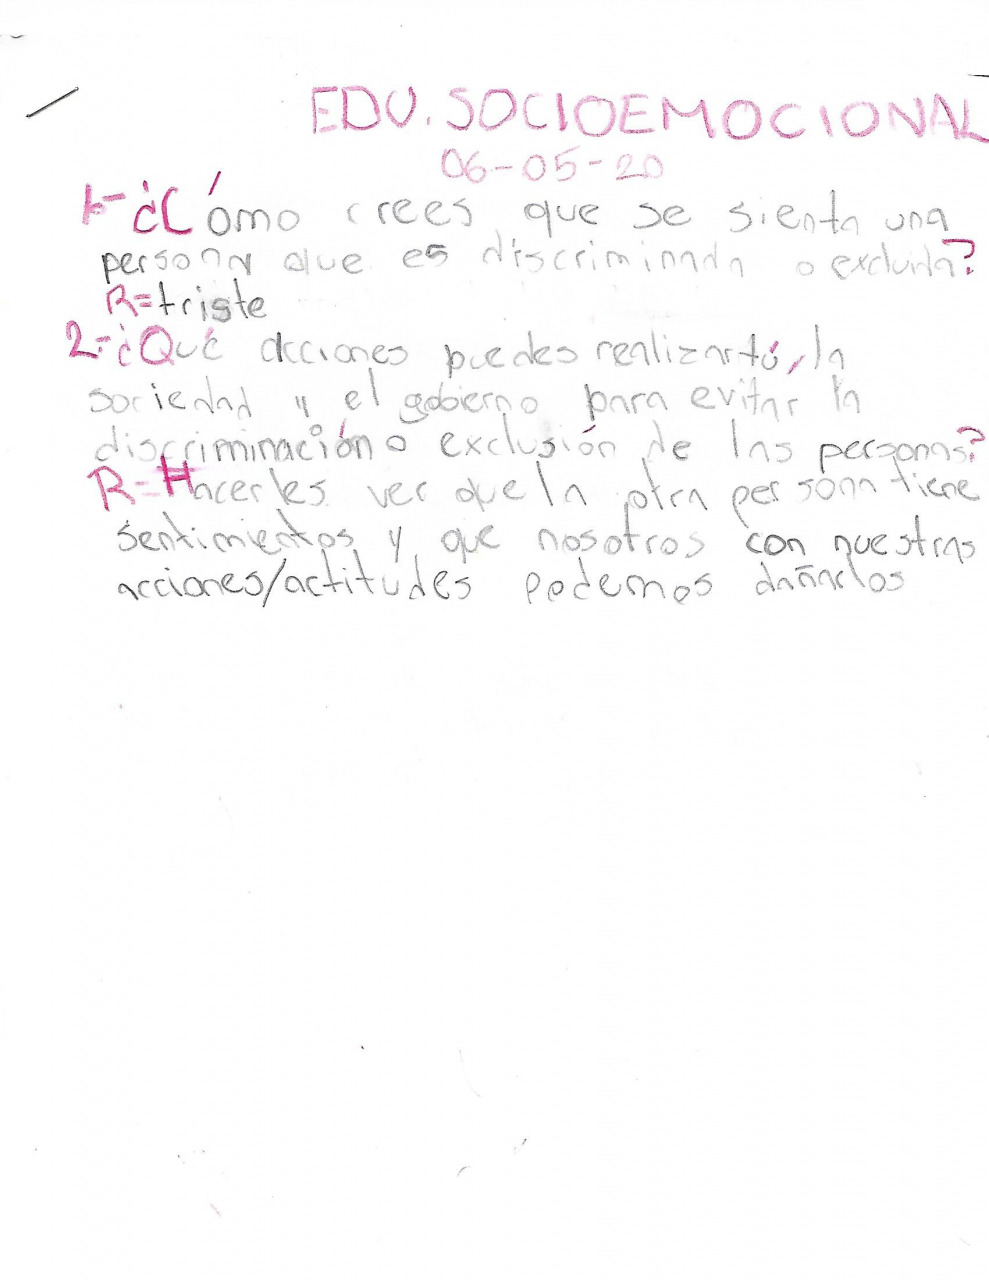 EDU. SOCIOEMOCIONAL
06-05-20
1-¿Cómo crees que se sienta una
persona que es discriminada o excluida?
R=triste
2-¿Qué acciones puedes realizar tú, la
sociedad y el gobierno para evitar la
discriminación o exclusión de las personas?
R=Hacerles ver que la otra persona tiene
sentimientos y que nosotros con nuestras
acciones/actitudes podemos dañarlos